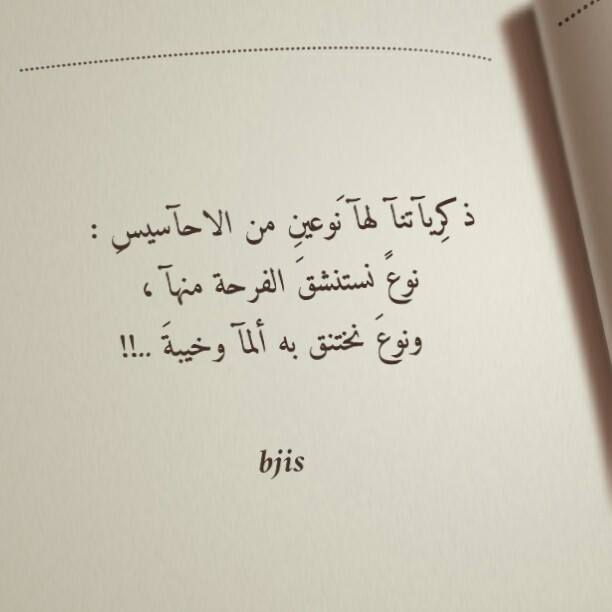 ذكِريآتنآ لهآ نَوعينِ من الاحآسيسِ :
نوعً نستنشقَ الفرحة منهآ ،
ونوعَ نختنق به ألمآ وخيبةَ ..!!
bjis